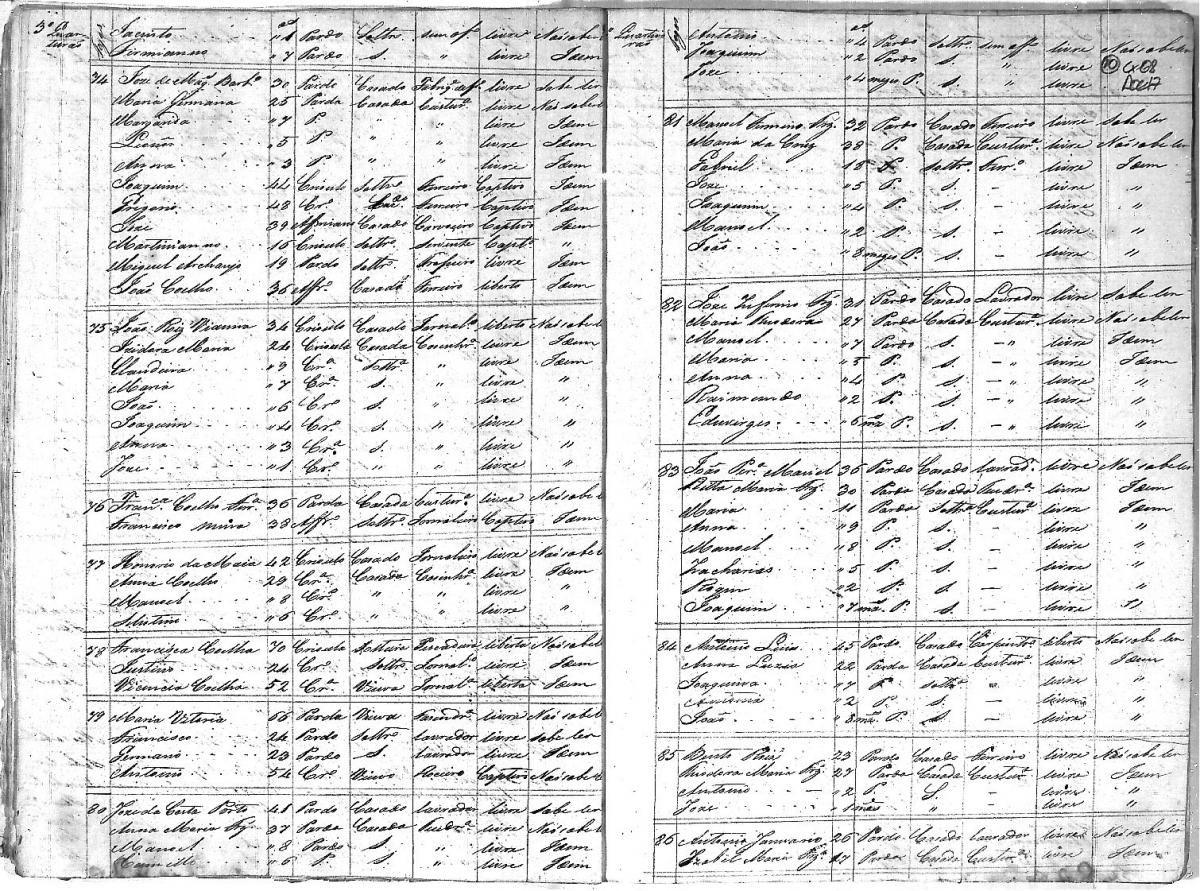 3º Quarteirão
Jacinto 1 Pardo Soltrº sem of. livre Não sabe
Firmianno 7 Pardo s. " livre Idem
74 Joze de Magª Barbª 30 Pardo Casado livre Sabe ler
Maria Germana 25 Parda Casada Custurª livre Não sabe
Margarida 7 P. " " livre Idem
5 P. " " livre Idem
Anna 3 P. " " livre Idem
Joaquim 44 Crioulo Soltrº Ferreiro Captivo Idem
48 Crº Ferreiro Captivo Idem
Joze 39 Affricano Casado Carreiro Captivo Idem
Martinianno 16 Crioulo Soltrº Servente Captº "
Miguel Archanjo 19 Pardo Soltrº livre Idem
João Coelho 36 Affrº Casado Ferreiro liberto Idem
75 João Roiz Vianna 34 Crioulo Casado Jornalº liberto Não sabe
Izidora Maria 24 Crioula Casada Cosinhrª livre Idem
9 Crª Soltrª " livre Idem
Maria 7 Crª s. " livre "
João 6 Crº s. " livre "
Joaquim 4 Crº s. " livre "
Anna 3 Crª s. " livre "
Joze 1 Crº " " livre "
76 Francª Coelho 36 Parda Casada Custurª livre Não sabe
Francisco Mina 38 Affrº Soltrº Jornaleiro Captivo Idem
77 Honorio de Maia 42 Crioulo Casado Jornaleiro livre Não sabe
Anna Coelho 29 Crª Casada Cosinhrª livre Idem
Manoel 8 Crº " " livre "
6 Crº " " livre "
78 Francisca Coelha 70 Crioula Solteira liberta Não sabe
Justino 24 Crº Soltrº Jornalº livre Idem
Vicencia Coelha 52 Crª Viuva Jornalª liberta Idem
79 Maria Vitoria 66 Parda Viuva livre Não sabe
Francisco 24 Pardo Soltrº laurador livre sabe ler
Germano 23 Pardo s. laurador livre Idem
Antonio 54 Crº Viuvo Captivo Não sabe
80 Joze da Costa Porto 41 Pardo Casado laurador livre sabe ler
Anna Maria 37 Parda Casada livre Não sabe
Manoel 8 Pardo s. " livre Idem
Camillo 6 P. s. " livre Idem
Quarteirão
Antonio 4 Pardo soltrº sem off. livre Não sabe ler
Joaquim 2 Pardo s. " livre
Joze 4 mezes P. s. " livre
10 Cx 68
Doc 17
81 Manoel Firmino 32 Pardo Casado Ferreiro livre sabe ler
Maria da Cruz 38 P. Casada Custurª livre Não sabe ler
Gabriel 18 P. soltrº Ferrº livre Idem
Joze 5 P. s. - livre "
Joaquim 4 P. s. - livre "
Manoel 2 P. s. - livre "
João 8 mezes P. s. - livre "
82 Joze 30 Pardo Casado Laurador livre Sabe ler
Maria Theodora 27 Parda Casada Custurª livre Não sabe ler
Manoel 7 Pardo s. - livre Idem
Maria 5 P. s. - livre Idem
Anna 4 P. s. - livre "
Raimundo 2 P. s. - livre "
Eduviges 6 mes P. s. - livre "
83 João Perª Maciel 36 Pardo Casado Laurad. livre Não sabe ler
Ritta Maria 30 Parda Casada livre Idem
Maria 11 Parda soltrª Custurª livre Idem
Anna 9 P. s. - livre "
Manoel 8 P. s. - livre "
Zacharias 5 P. s. - livre "
2 P. s. - livre "
Joaquim 7 mes P. s. - livre "
84 Antonio Luis 45 Pardo Casado Carpintrº liberto Não sabe ler
Anna Luzia 22 Parda Casada Custurª livre Idem
Joaquina 7 P. soltrª " livre "
Antonia 2 P. s. - livre "
João 8 mes P. s. - livre "
85 Bento 23 Pardo Casado Ferreiro livre Não sabe ler
Theodora Maria 27 Parda Casada Custurª livre Idem
Antonio 2 P. S. - livre "
Joze 1 mes - livre "
86 Antonio Januario 26 Pardo Casado laurador livre Não sabe ler
Izabel Maria 17 Parda Casada Custurª livre Idem